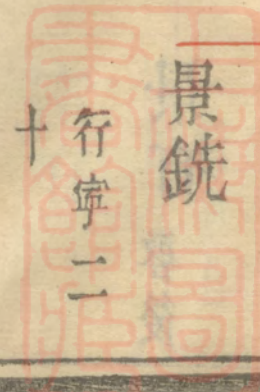 景銑
行寕二
十